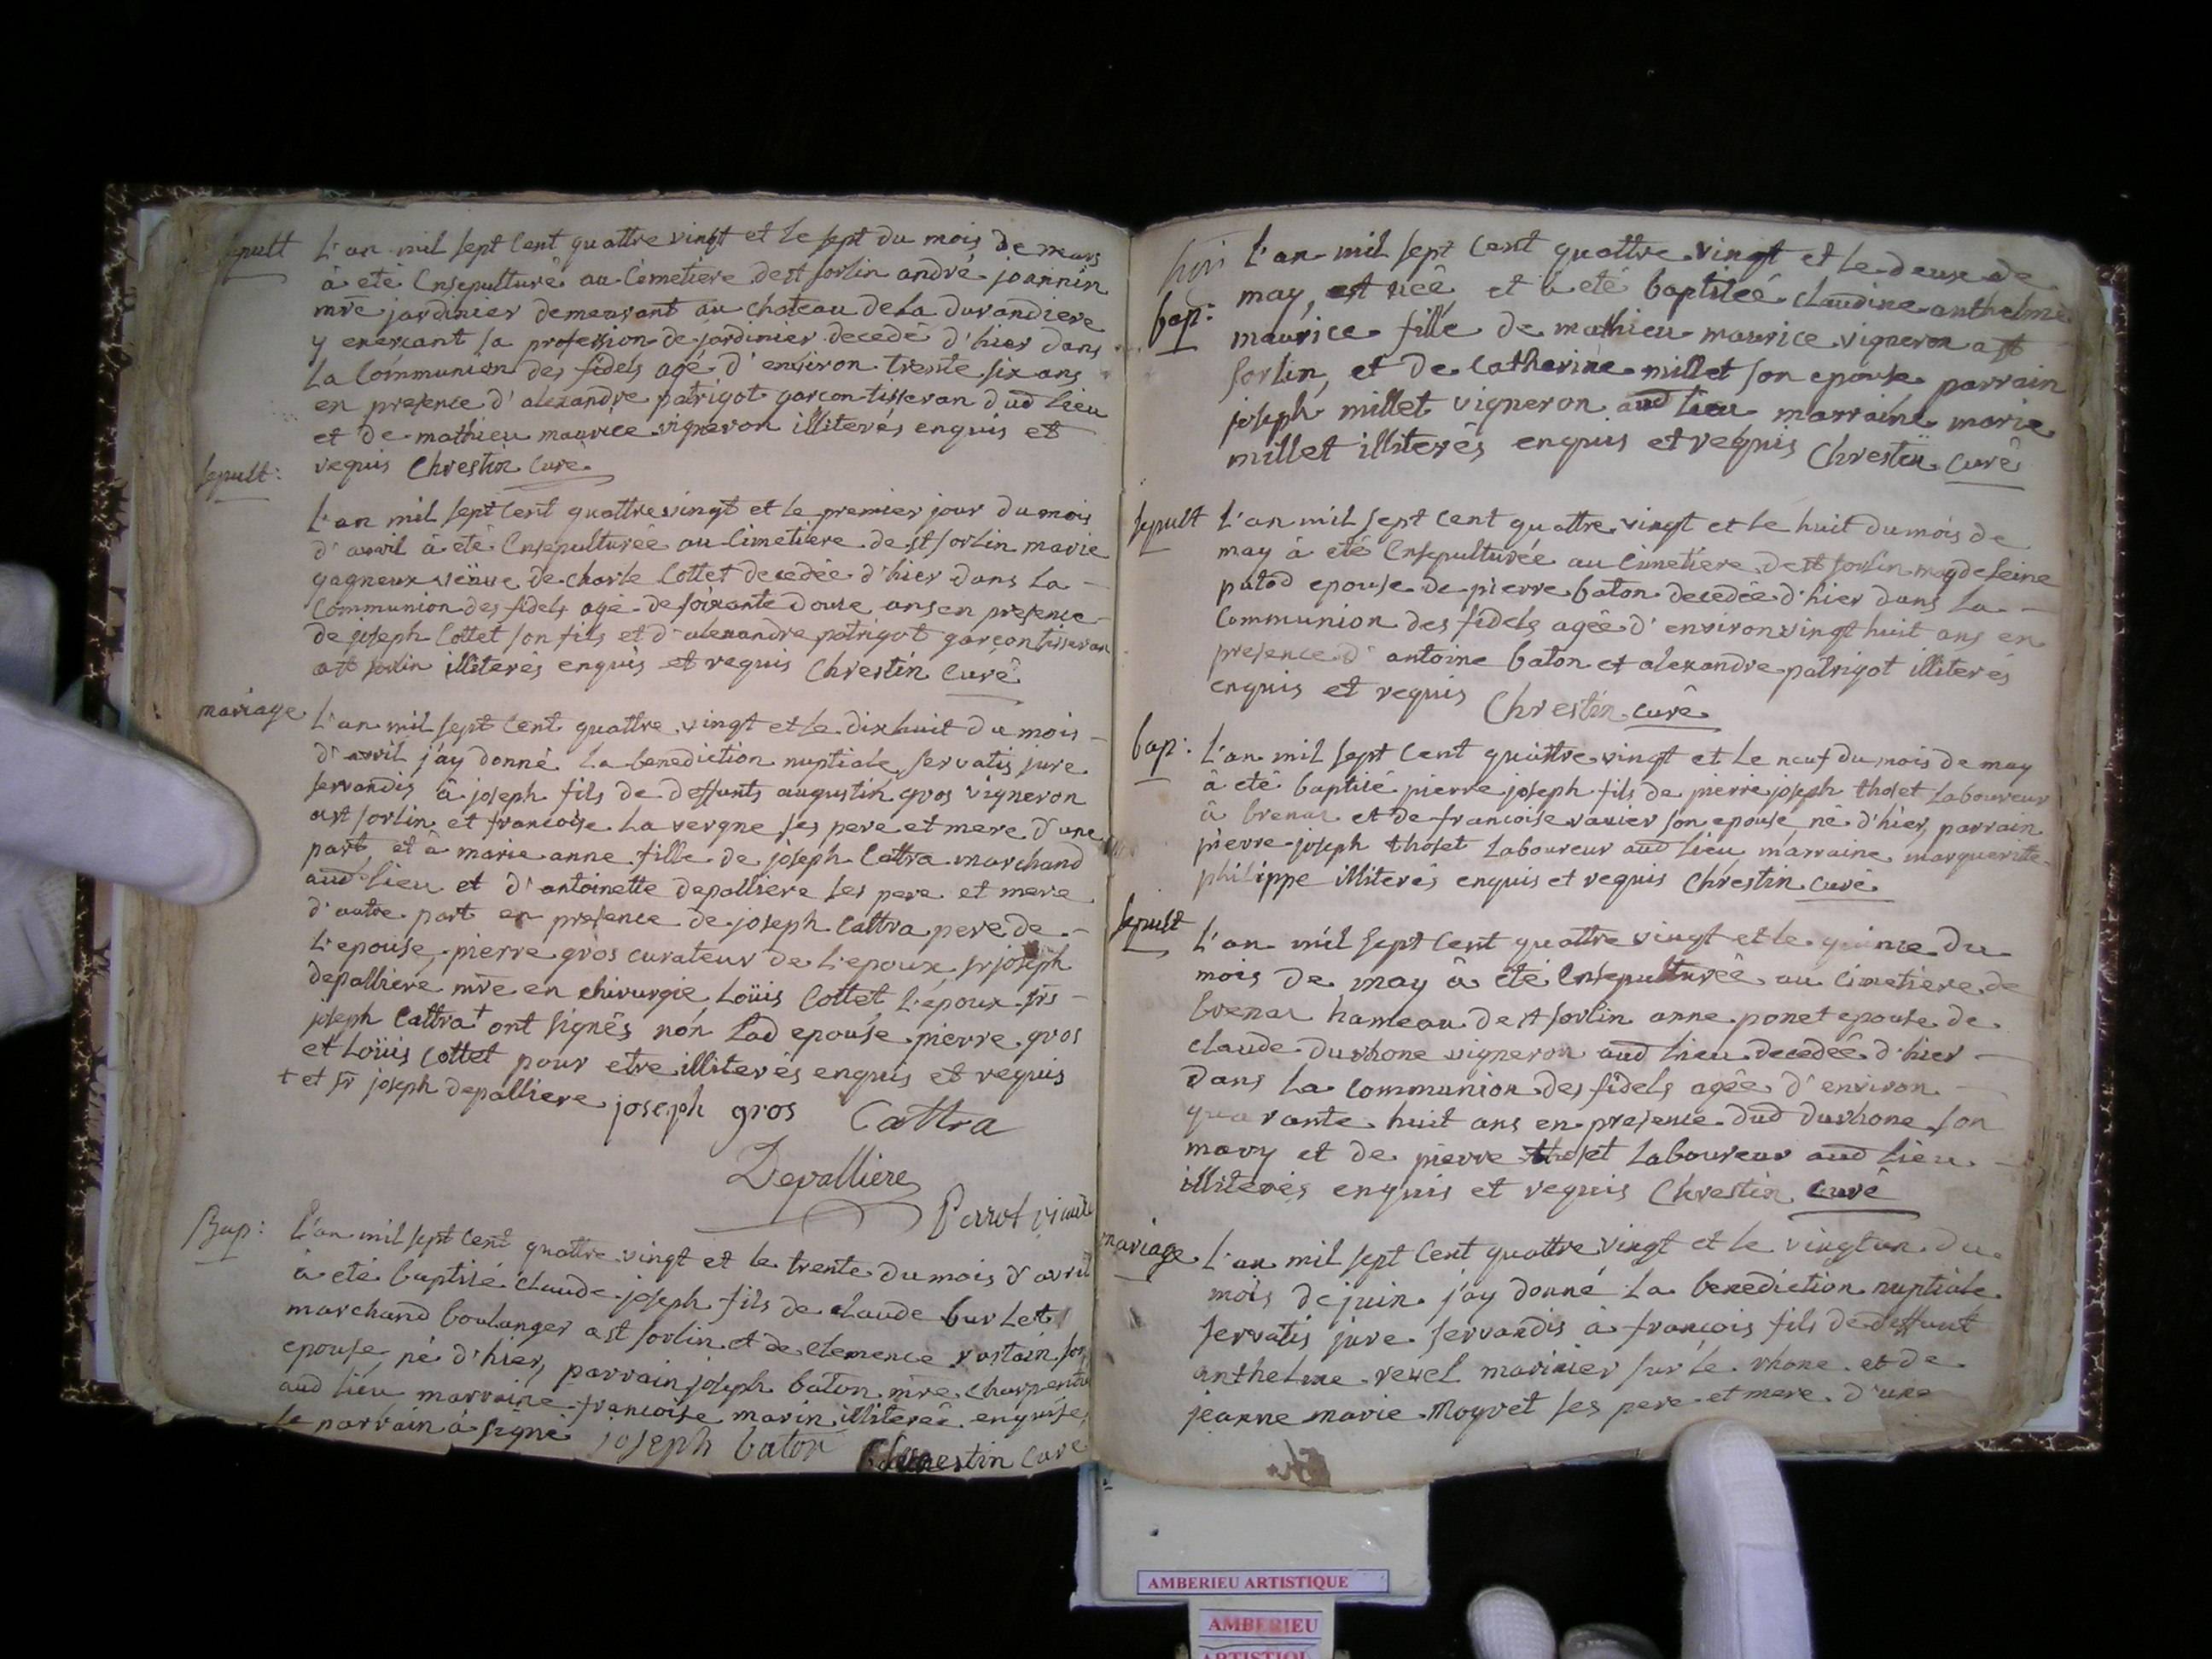 sepult
L'an mil sept cent quattre vingt et le sept du mois de mars
à eté Ensepulturé au Cemetiere de st sorlin andré joannin
mre jardinier demeurant au chateau de La durandiere
y exerçant sa profession de jardinier decedé d'hier dans
La Communion des fidels agé d'environ trente six ans
en presence d'alexandre patrigot garçon tisseran dud lieu
et de mathieu maurice vigneron illiterés enquis et
requis Chrestin Curé
sepult:
L'an mil sept Cent quattre vingt et le premier jour du mois
d'avril à eté Ensepulturée au Cimetiere de st sorlin marie
gagneux veuve de charle Cottet decedée d'hier dans La
Communion des fidels agé de soixante douze ans en presence
de joseph Cottet son fils et d'alexandre patrigot garçon tisseran
a st sorlin illiterés enquis et requis Chrestin Curé
mariage
L'an mil sept Cent quattre vingt et le dix huit du mois
d'avril j'ay donné La benediction nuptiale servatis jure
servandis à joseph fils de deffunts augustin gros vigneron
a st sorlin et françoise La vergne ses pere et mere d'une
part, et à marie anne fille de joseph Cattra marchand
aud lieu et d'antoinette depalliere ses pere et mere
d'autre part en presence de joseph Cattra pere de
L'epouse, pierre gros curateur de L'epoux, sr joseph
depalliere mre en chirurgie, Loüis Cottet L'époux srs
joseph Cattra + ont signés non Lad epouse pierre gros
et Loüis Cottet pour etre illiterés enquis et requis
+ et sr joseph depalliere joseph gros Cattra
Depalliere
Perrot vicaire
Bap:
L'an mil sept Cent quattre vingt et le trente du mois d'avril
à eté baptisé Claude joseph fils de claude burlet
marchand boulanger a st sorlin et de clemence rostain son
epouse, né d'hier, parrain joseph baton mre charpentier
aud lieu marraine françoise marin illiterée enquise,
le parrain à signé joseph baton Chrestin Curé
bap:
L'an mil sept cent quattre vingt et le deux de
may, est neê et à eté baptiseé claudine anthelme
maurice fille de mathieu maurice vigneron a st
sorlin, et de Catherine millet son epouse parrain
joseph millet vigneron aud lieu marraine marie
millet illiterés enquis et requis Chrestin curé
sepult
L'an mil sept cent quattre vingt et le huit du mois de
may à eté Ensepulturée au Cimetiere de st sorlin magdeleine
patod epouse de pierre baton decedée d'hier dans La
Communion des fidels agée d'environ vingt huit ans en
presence d'antoine baton et alexandre patrigot illiterés
enquis et requis Chrestin curé
bap:
L'an mil sept Cent quattre vingt et le neuf du mois de may
à eté baptisé pierre joseph fils de pierre joseph thoset Laboureur
à brenaz et de françoise ravier son epouse né d'hier, parrain
pierre joseph thoset Laboureur aud lieu marraine marguerite
philippe illiterés enquis et requis Chrestin curé
sepult
L'an mil sept Cent quattre vingt et le quinze du
mois de may à eté Ensepulturée au Cimetiere de
brenaz hameau de st sorlin anne ponet epouse de
claude durhone vigneron aud lieu decedée d'hier
dans La Communion des fidels agée d'environ
quarante huit ans en presence dud durhone son
mary et de pierre thoset Laboureur aud lieu
illiterés enquis et requis Chrestin curé
mariage
L'an mil sept Cent quattre vingt et le vingt un du
mois de juin j'ay donné La benediction nuptiale
servatis jure servandis à françois fils de deffunt
anthelme revel marinier sur le rhone et de
jeanne marie Moyret ses pere et mere d'une
AMBERIEU ARTISTIQUE
AMBERIEU
ARTISTIQUE